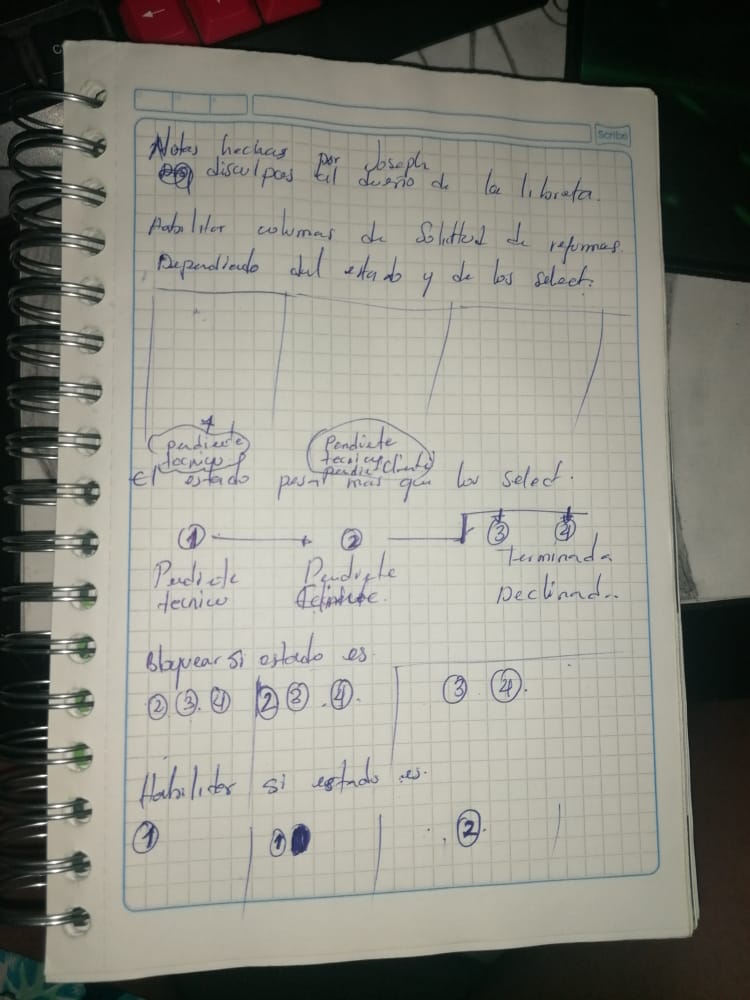 Scribe
Notas hechas por Joseph
disculpas al dueño de la libreta.
Habilitar columas de Solicttud de reformas.
Dependiado del estado y de los select.
pendiente
tecnico
Pendiete
tecnico
pendie cliente
El estado pesa mas que los select.
1 2 3 4
Pendiete
tecnico
Pendiete
Terminada
Declinada..
Bloquear si estado es
2 3. 4 2 3 . 4. 3 4.
Habilitar si estado es.
1 1 2.